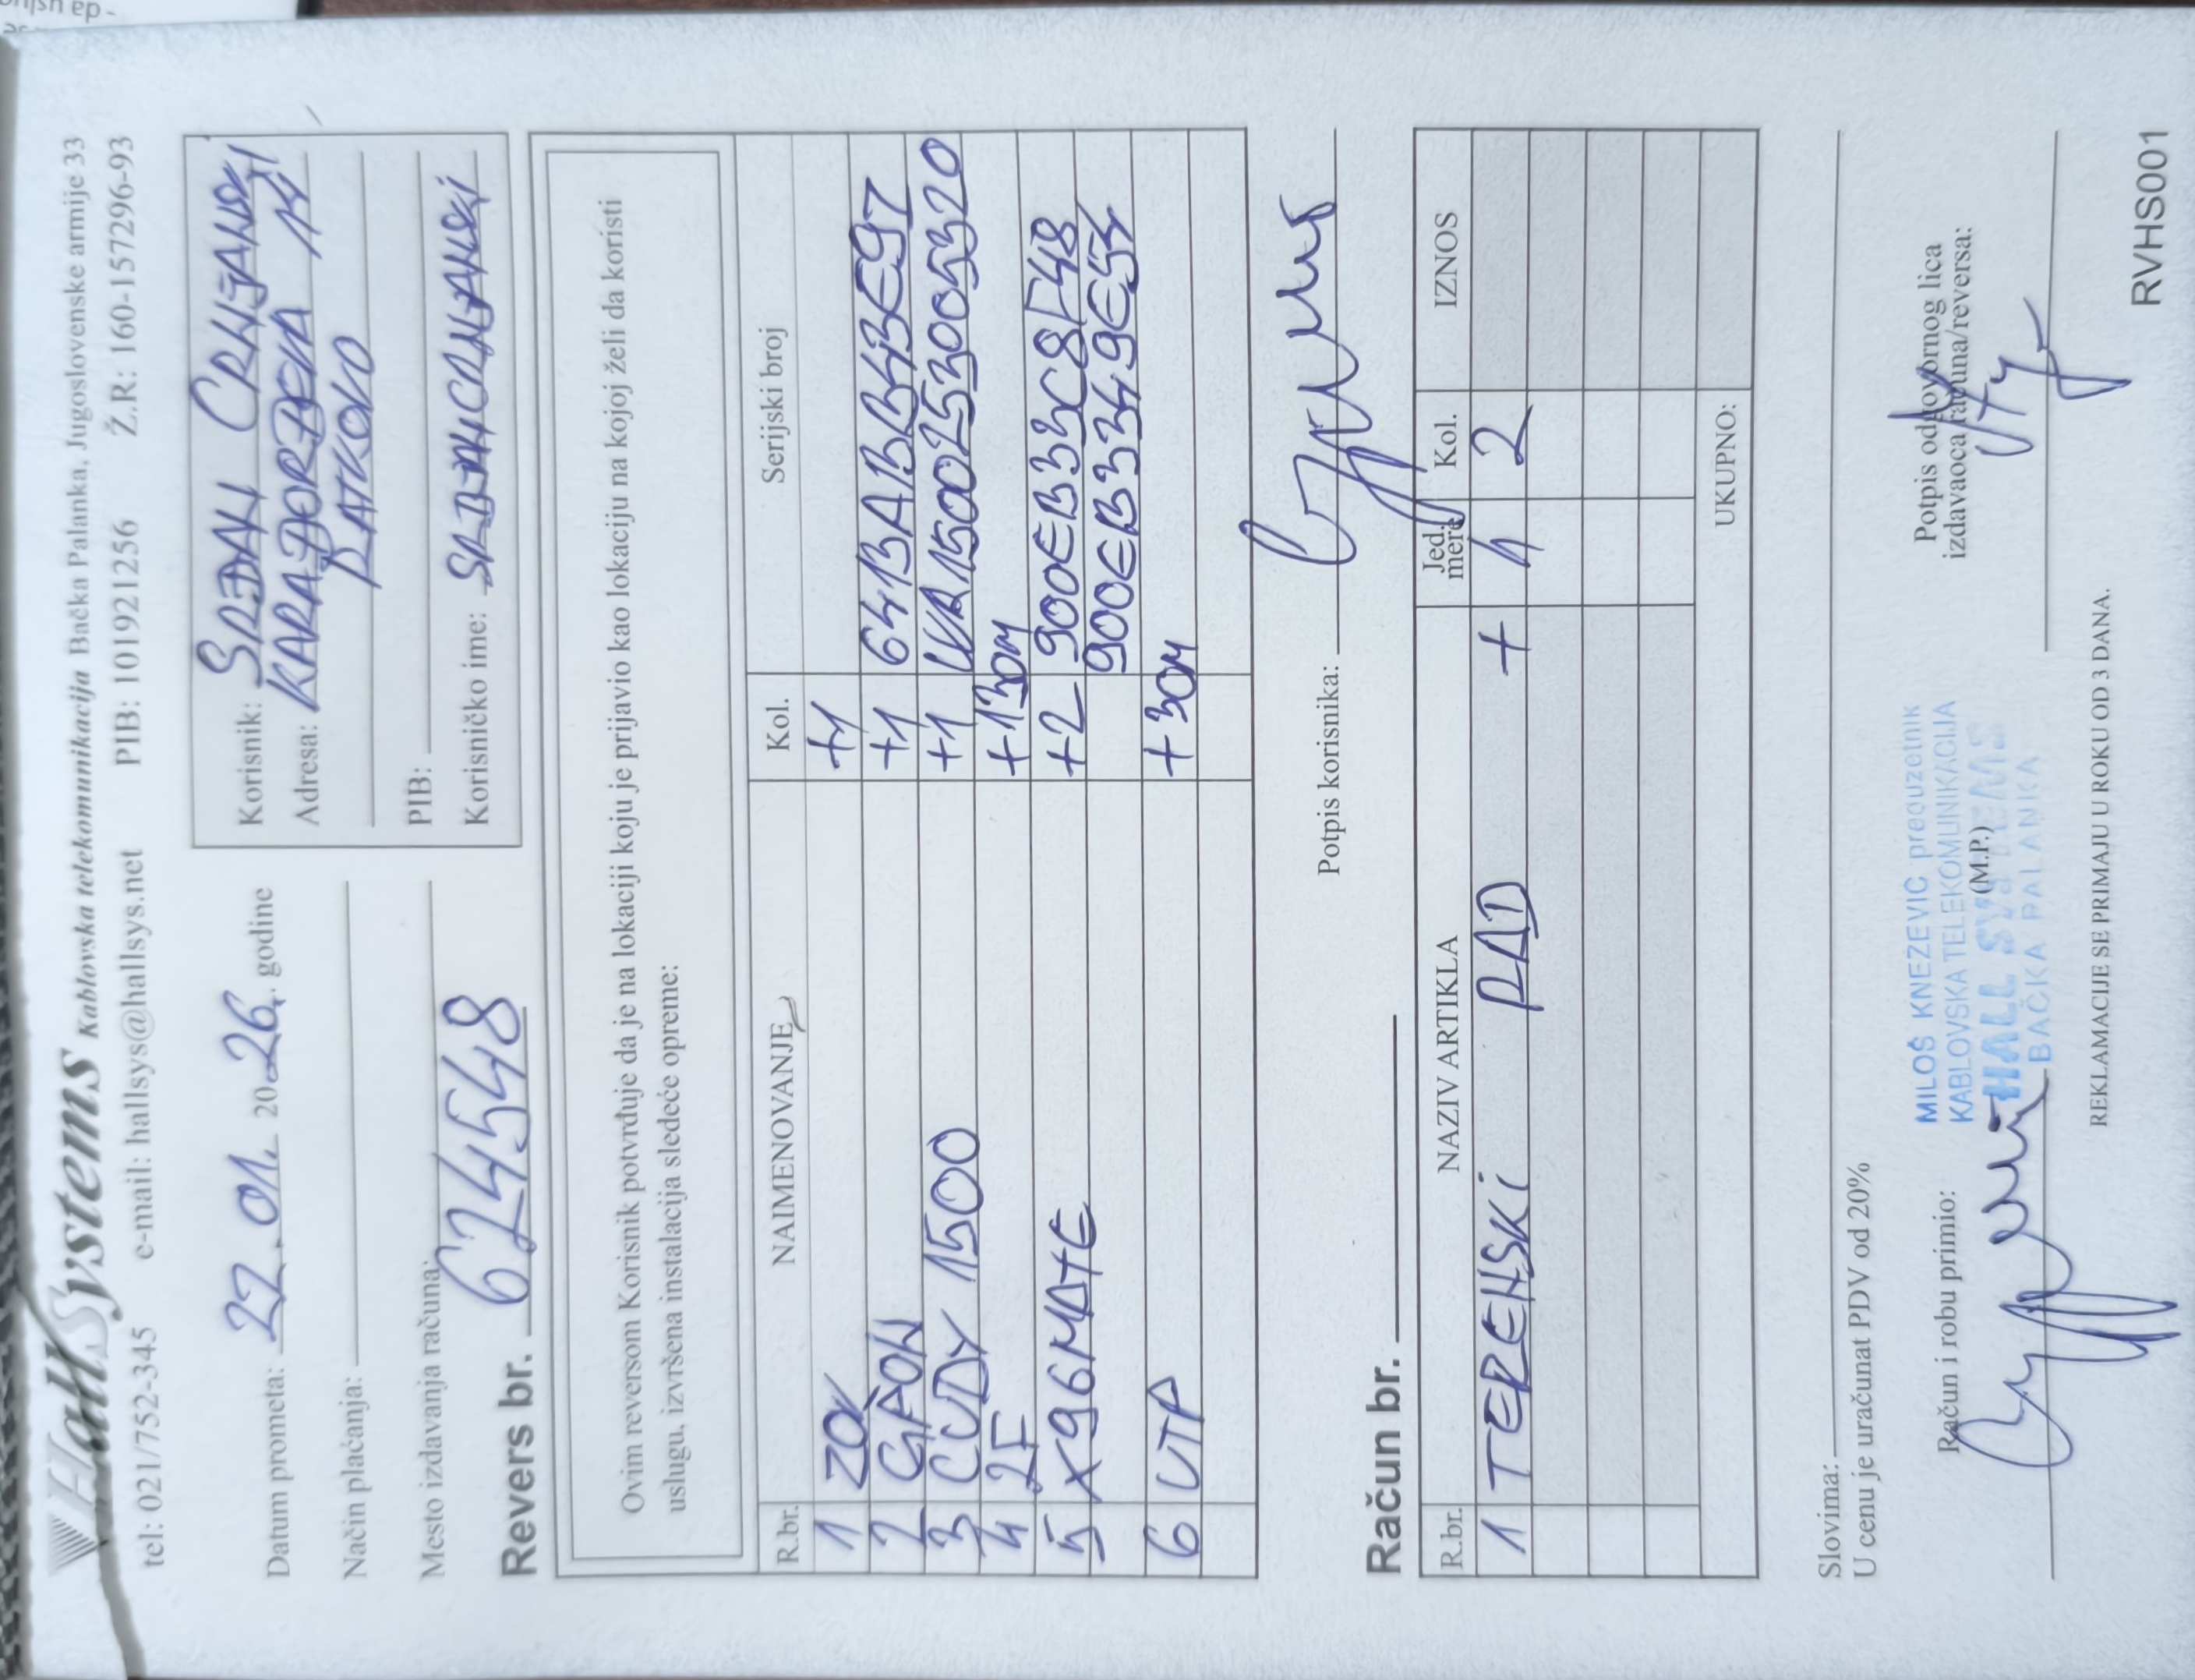 HallSystems Kablovska telekomunikacija Bačka Palanka, Jugoslovenske armije 33
tel: 021/752-345 e-mail: hallsys@hallsys.net PIB: 101921256 Ž.R: 160-157296-93
Datum prometa: 22.01. 2026. godine
Način plaćanja:
Mesto izdavanja računa:
Korisnik: SRĐAN CRNJANSKI
Adresa: KARAĐORĐEVA
RATKOVO
PIB:
Korisničko ime:
Revers br. 624548
Ovim reversom Korisnik potvrđuje da je na lokaciji koju je prijavio kao lokaciju na kojoj želi da koristi
uslugu, izvršena instalacija sledeće opreme:
R.br. NAIMENOVANJE Kol. Serijski broj
1 ZOK +1
2 GPON +1 6413AB343E97
3 CUDY 1500 +1 WR1500253005320
4 2F +130M
5 X96MATE +2 900EB33C8F48
900EB3349E54
6 UTP +30M
Potpis korisnika:
Račun br.
R.br. NAZIV ARTIKLA Jed. mere Kol. IZNOS
1 TERENSKI RAD + h 2
UKUPNO:
Slovima:
U cenu je uračunat PDV od 20%
Račun i robu primio:
MILOŠ KNEZEVIĆ preduzetnik
KABLOVSKA TELEKOMUNIKACIJA
(M.P.)
HALL SYSTEMS
BAČKA PALANKA
Potpis odgovornog lica
izdavaoca računa/reversa:
REKLAMACIJE SE PRIMAJU U ROKU OD 3 DANA.
RVHS001